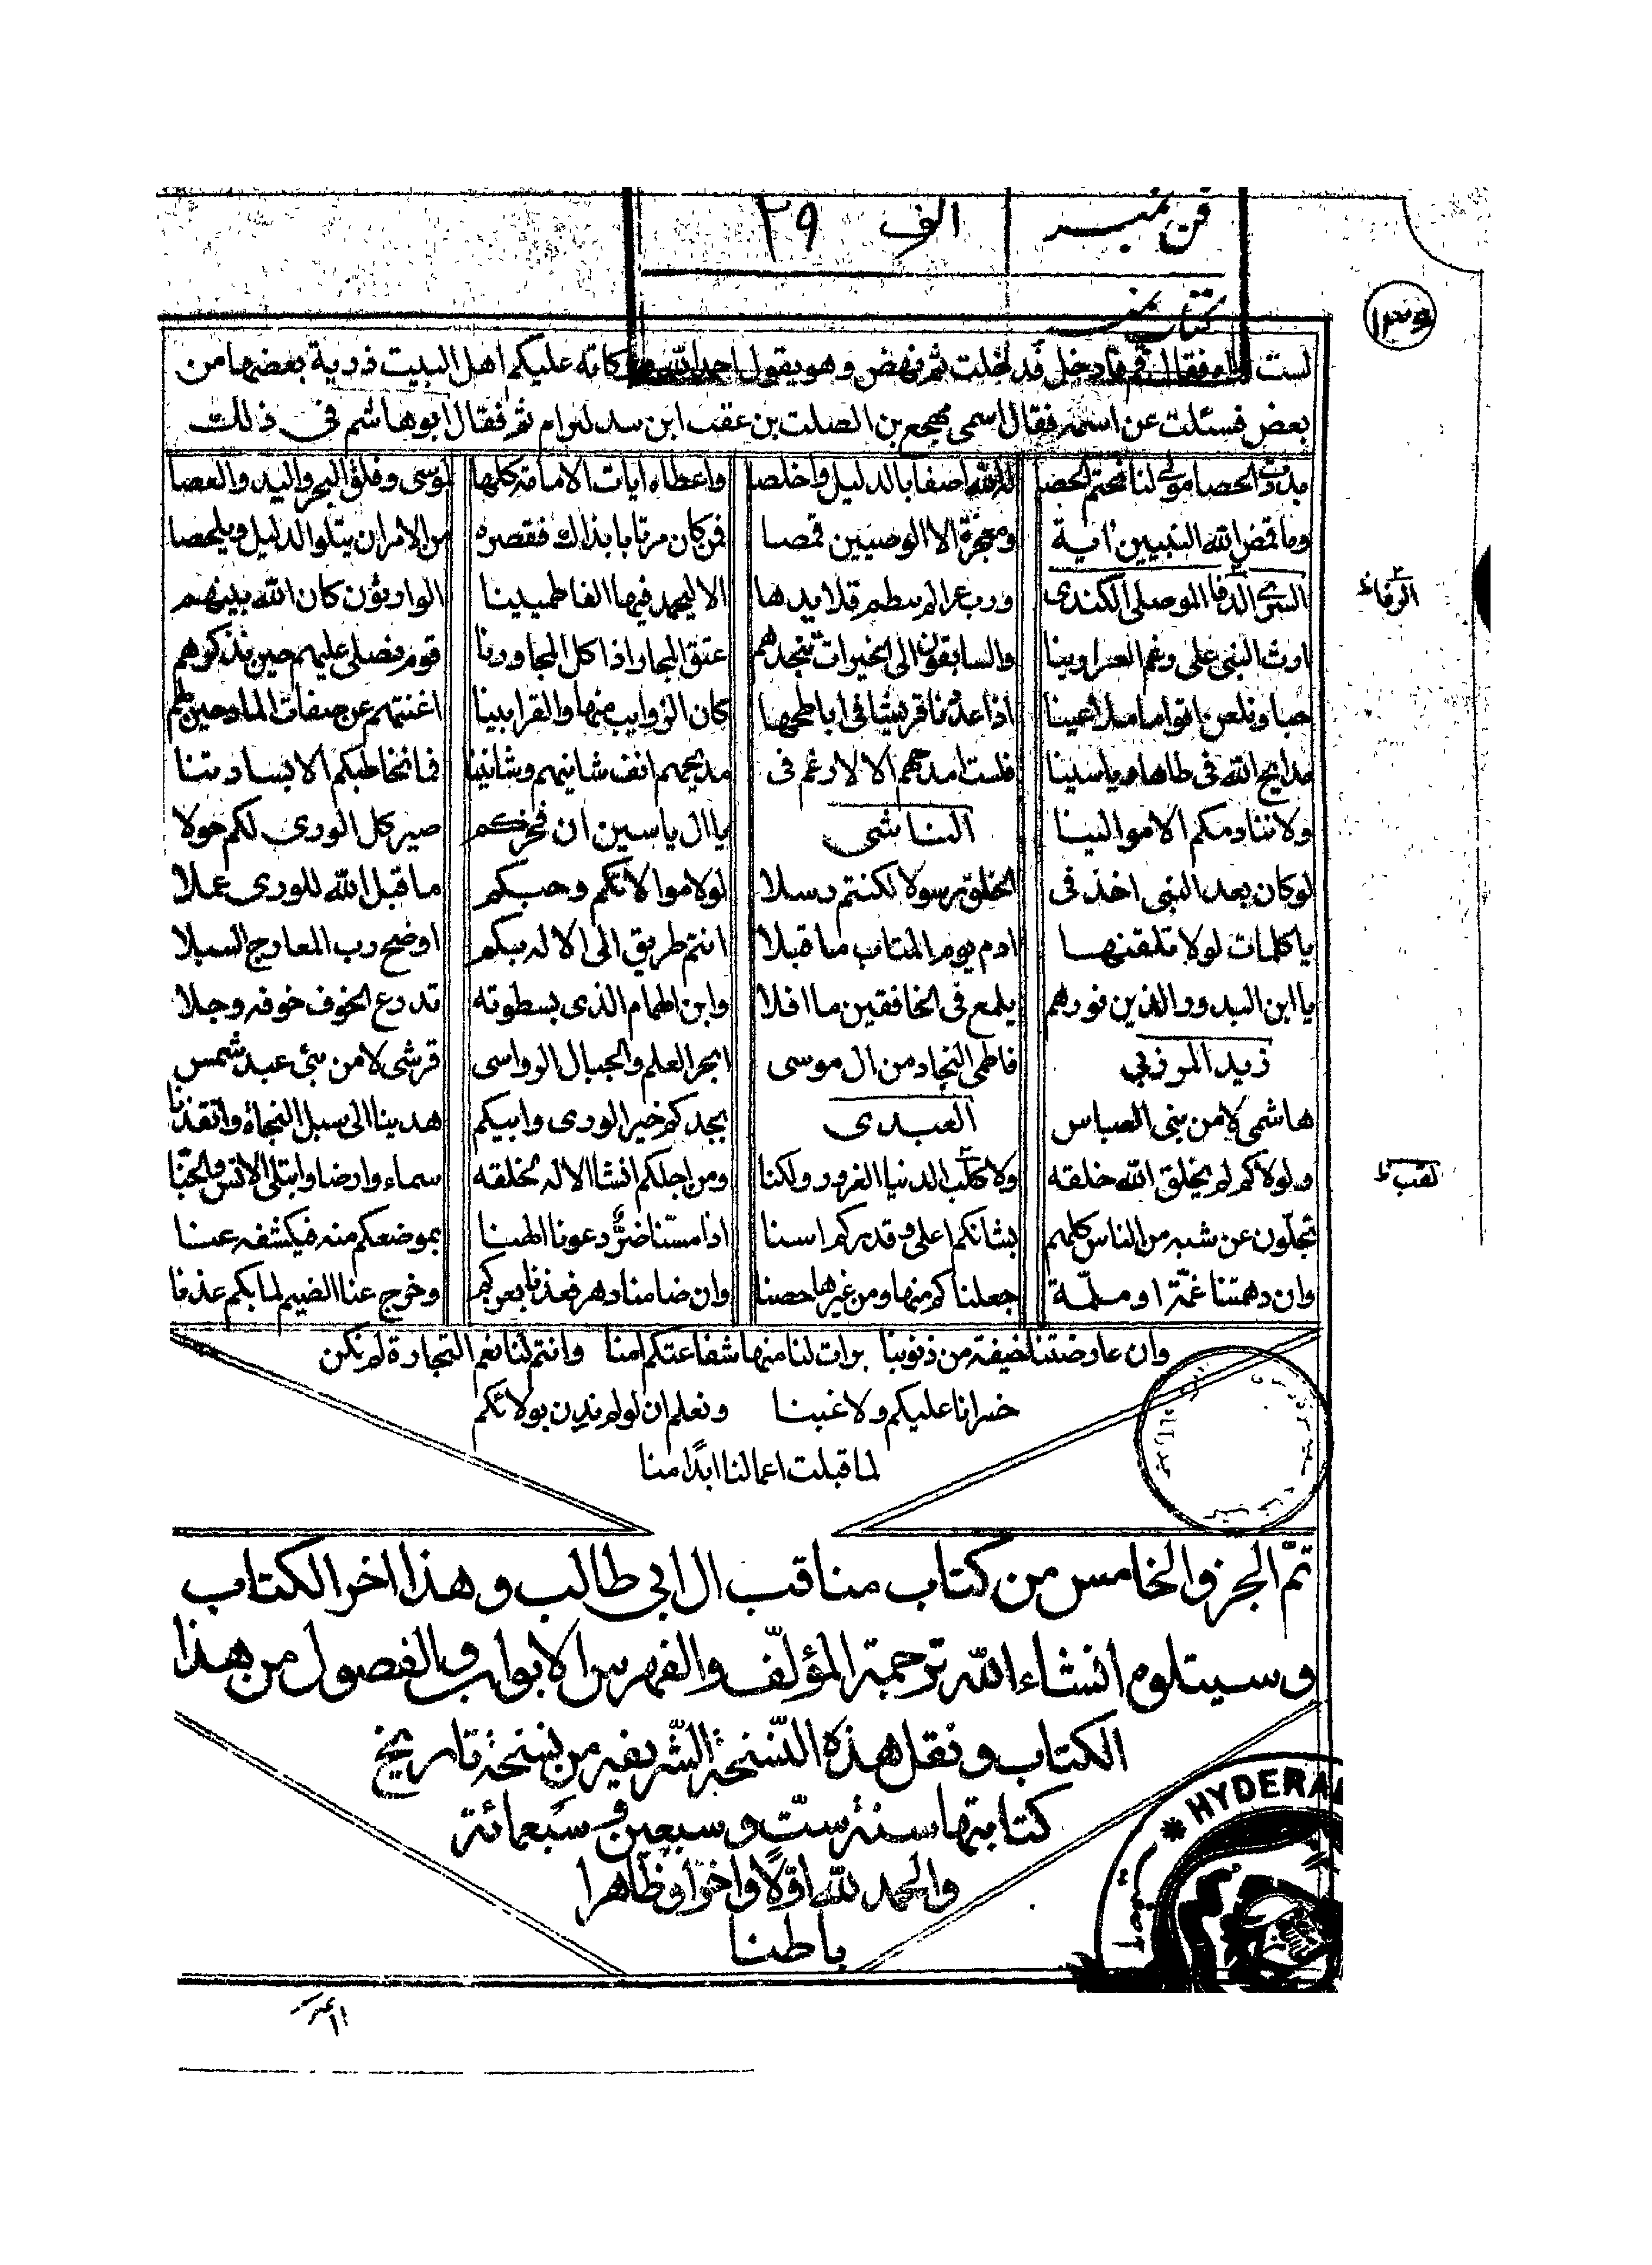 فن نمبر الف ٢٩
كتاب نمبر
١٣٩
لست اراه فقال قم فادخل فدخلت ثم نهض وهو يقول رحمة الله وبركاته عليكم اهل البيت ذرية بعضها من
بعض فسئلت عن اسمه فقال اسمى مهجع بن الصلت بن عقبة ابن سمعان ثم فقال ابو هاشم فى ذلك
بدرب الحصا مولى لنا يختم الحصا له الله اصفا بالدليل واخلصا واعطاه ايات الامامة كلها لموسى وفلق البحر واليد والعصا
وما قمص الله النبيين اية ومعجزة الا الوصيين قمصا فمن كان مرتابا بذاك فقصره من الامر ان يتلو الدليل ويفحصا
السرى الرفا الموصلى الكندى الا ليحمد فيها الفاطميينا الوارثون كان الله بينهم
الرفاء ظ
ارث النبى على رغم العداوينا والسابقون الى الخيرات تنجدهم عتق البحار اذا كل المجاورنا قوم نصلى عليهم حين نذكرهم
حبا ونلعن اقواما ملاعينا اذا عددنا قريشا فى اباطحها كان الذوايب منها والقرابينا اغنتهم عن صفات المادحين لهم
مدايح الله فى طاها وياسينا فلست امدحهم الا لارغم فى مديحهم انف شانيهم وشانينا فما نخاطبكم الا بسادتنا
ولا ننادمكم الا موالينا الناشى يا ال ياسين ان فخركم صير كل الورى لكم خولا
لو كان بعد النبى اخذ فى الخلق رسولا لكنتم رسلا لولا موالاتكم وحبكم ما قبل الله للورى عملا
يا كلمات لولا تلقنها ادم يوم المتاب ما قبلا انتم طريق الى الاله بكم اوضح رب المعارج السبلا
يا ابن البدور الذين نورهم يلمع فى الخافقين ما افلا وابن الهمام الذى بسطوته تدرع الخوف خوفه وجلا
زيد المرزبى فاطمى النجاد من ال موسى ابحر العلم والجبال الرواسى قرشى لا من بنى عبد شمس
هاشمى لا من بنى العباس العبدى بجدكم خير الورى وابيكم هدينا الى سبل النجاة وانقذنا
ولولاكم لم يخلق الله خلقه ولا لقب الدنيا الغرور ولا كنا ومن اجلكم انشا الاله لخلقه سماء وارضا وابتلى الانس والجنا
لقب ظ
تجلون عن شبه من الناس كلهم بشانكم اعلى وقدركم اسنا اذا مسنا ضرٌّ دعونا الهنا بموضعكم منه فيكشفه عنا
وان دهمتنا غمة او ملمة جعلناكم منها ومن غيرها حصنا وان ضامنا دهر فعذنا بعزكم وخرج عنا الضيم لما بكم عذنا
وان عارضتنا خيفة من ذنوبنا برات لنا منها شفاعتكم امنا وانتم لنا نعم التجارة لم نكن
خسرانا عليكم ولا غبنا ونعلم ان لو لم ندن بولائكم
لما قبلت اعمالنا ابدًا منا
تمّ الجزو الخامس من كتاب مناقب ال ابى طالب وهذا اخر الكتاب
وسيتلوم انشاء الله ترجمة المؤلّف والفهرس الابواب والفصول من هذا
الكتاب ونقل هذه النّسخة الشّريفيه من نسخة تاريخ
كتابتها سنة ستّ وسبعين و سبعمائة
والحمد لله اوّلًا واخرًا وظاهرا
باطنا
HYDERA